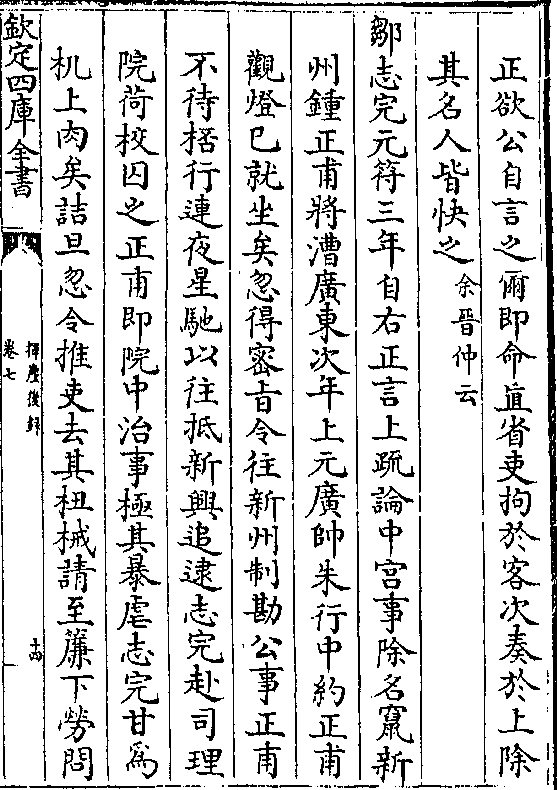 正欲公自言之爾即命直省吏拘於客次奏於上除
其名人皆快之余晉仲云
鄒志完元符三年自右正言上疏論中宫事除名竄新
州鍾正甫將漕廣東次年上元廣帥朱行中約正甫
觀燈已就坐矣忽得密旨令往新州制勘公事正甫
不待桰行連夜星馳以往抵新興追逮志完赴司理
院荷校囚之正甫即院中治事極其暴虐志完甘為
机上肉矣詰旦忽令推吏去其杻械請至簾下勞問
欽定四庫全書
揮麈後録
卷七
十四